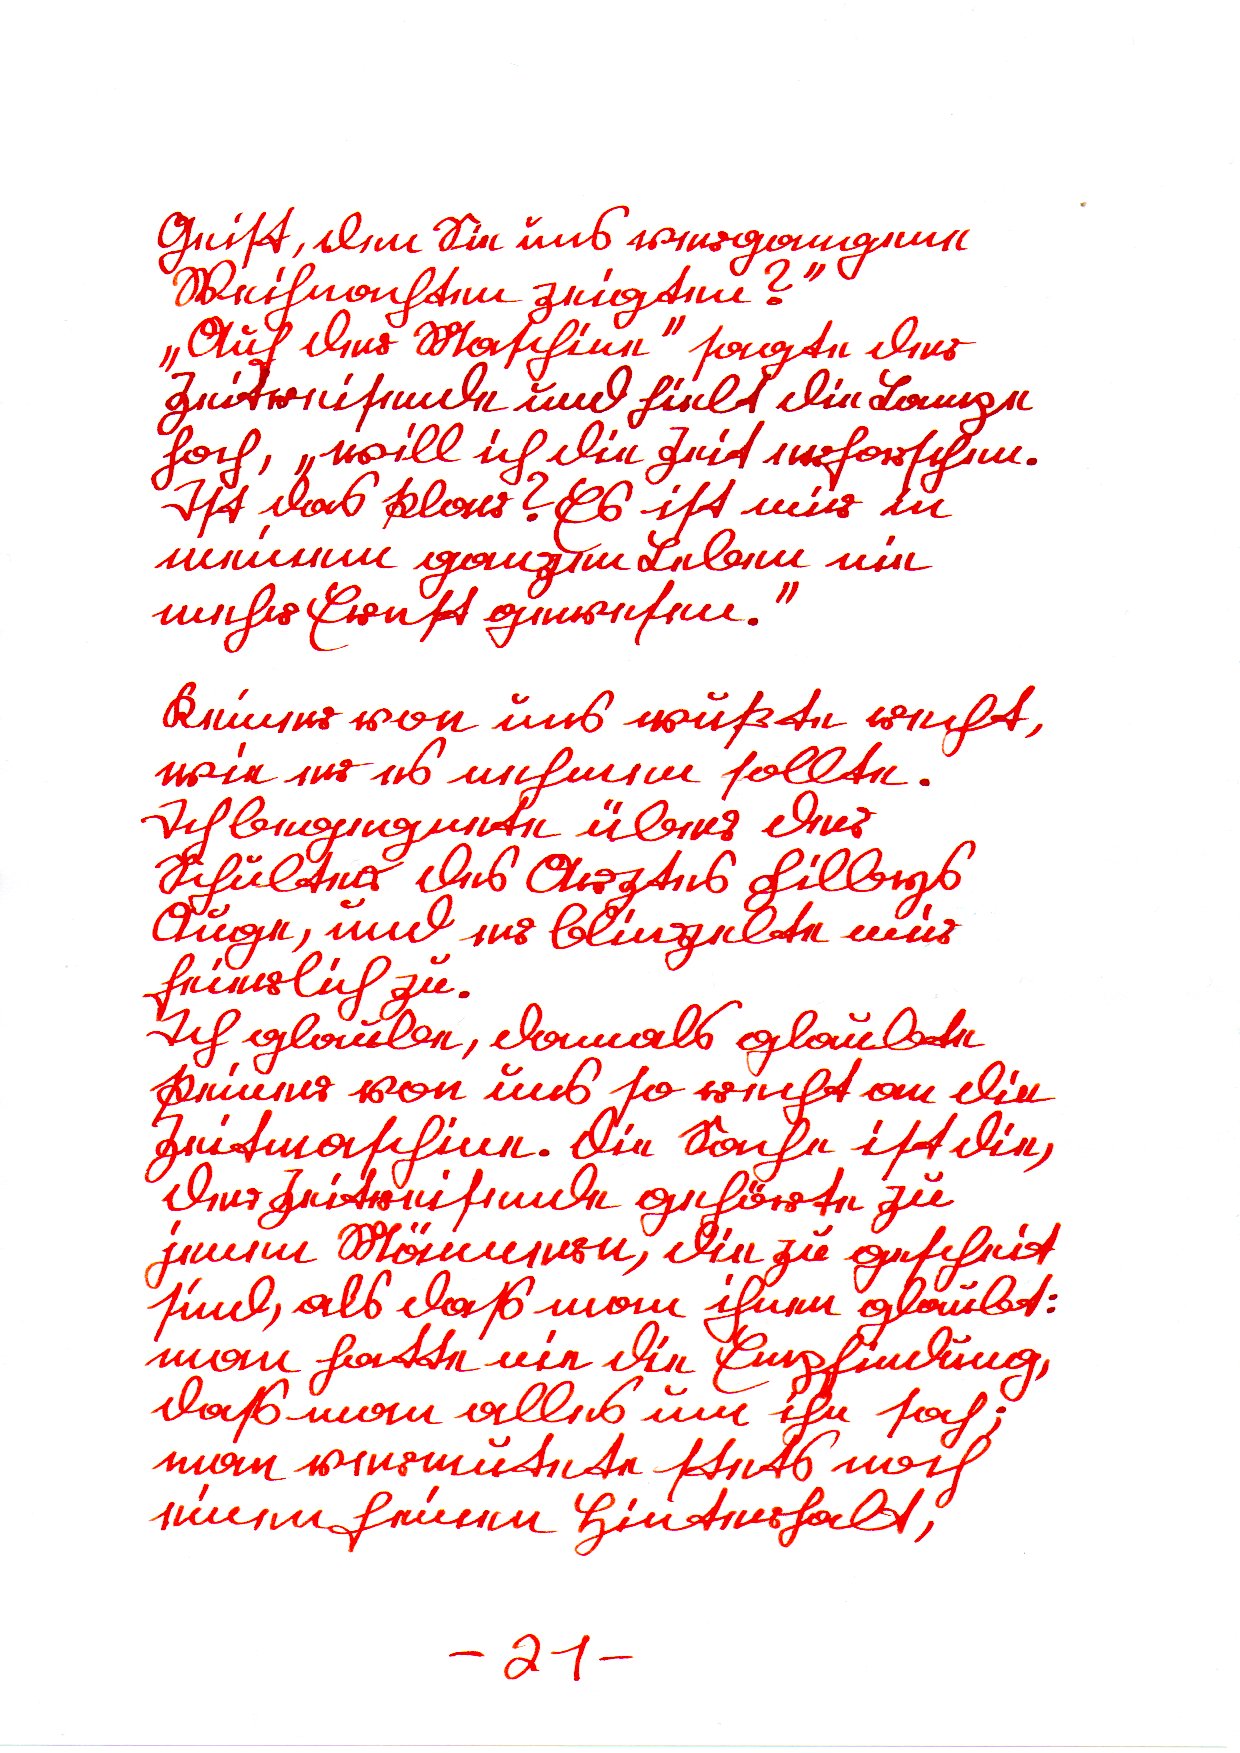 Geist, den Sie uns vergangene
Weihnachten zeigten?"
„Auf der Maschine" sagte der
Zeitreisende und hielt die Lampe
hoch, „will ich die Zeit erforschen.
Ist das klar? Es ist mir in
meinem ganzen Leben nie
mehr Ernst gewesen."
Keiner von uns wußte recht,
wie er es nehmen sollte.
Ich begegnete über der
Schulter des Arztes Filbys
Auge, und er blinzelte mir
feierlich zu.
Ich glaube, damals glaubte
keiner von uns so recht an die
Zeitmaschine. Die Sache ist die,
der Zeitreisende gehörte zu
jenen Männern, die zu gescheit
sind, als daß man ihnen glaubt:
man hatte nie die Empfindung,
daß man alles um ihn sah;
man vermutete stets noch
einen feinen Hinterhalt,
- 21 -